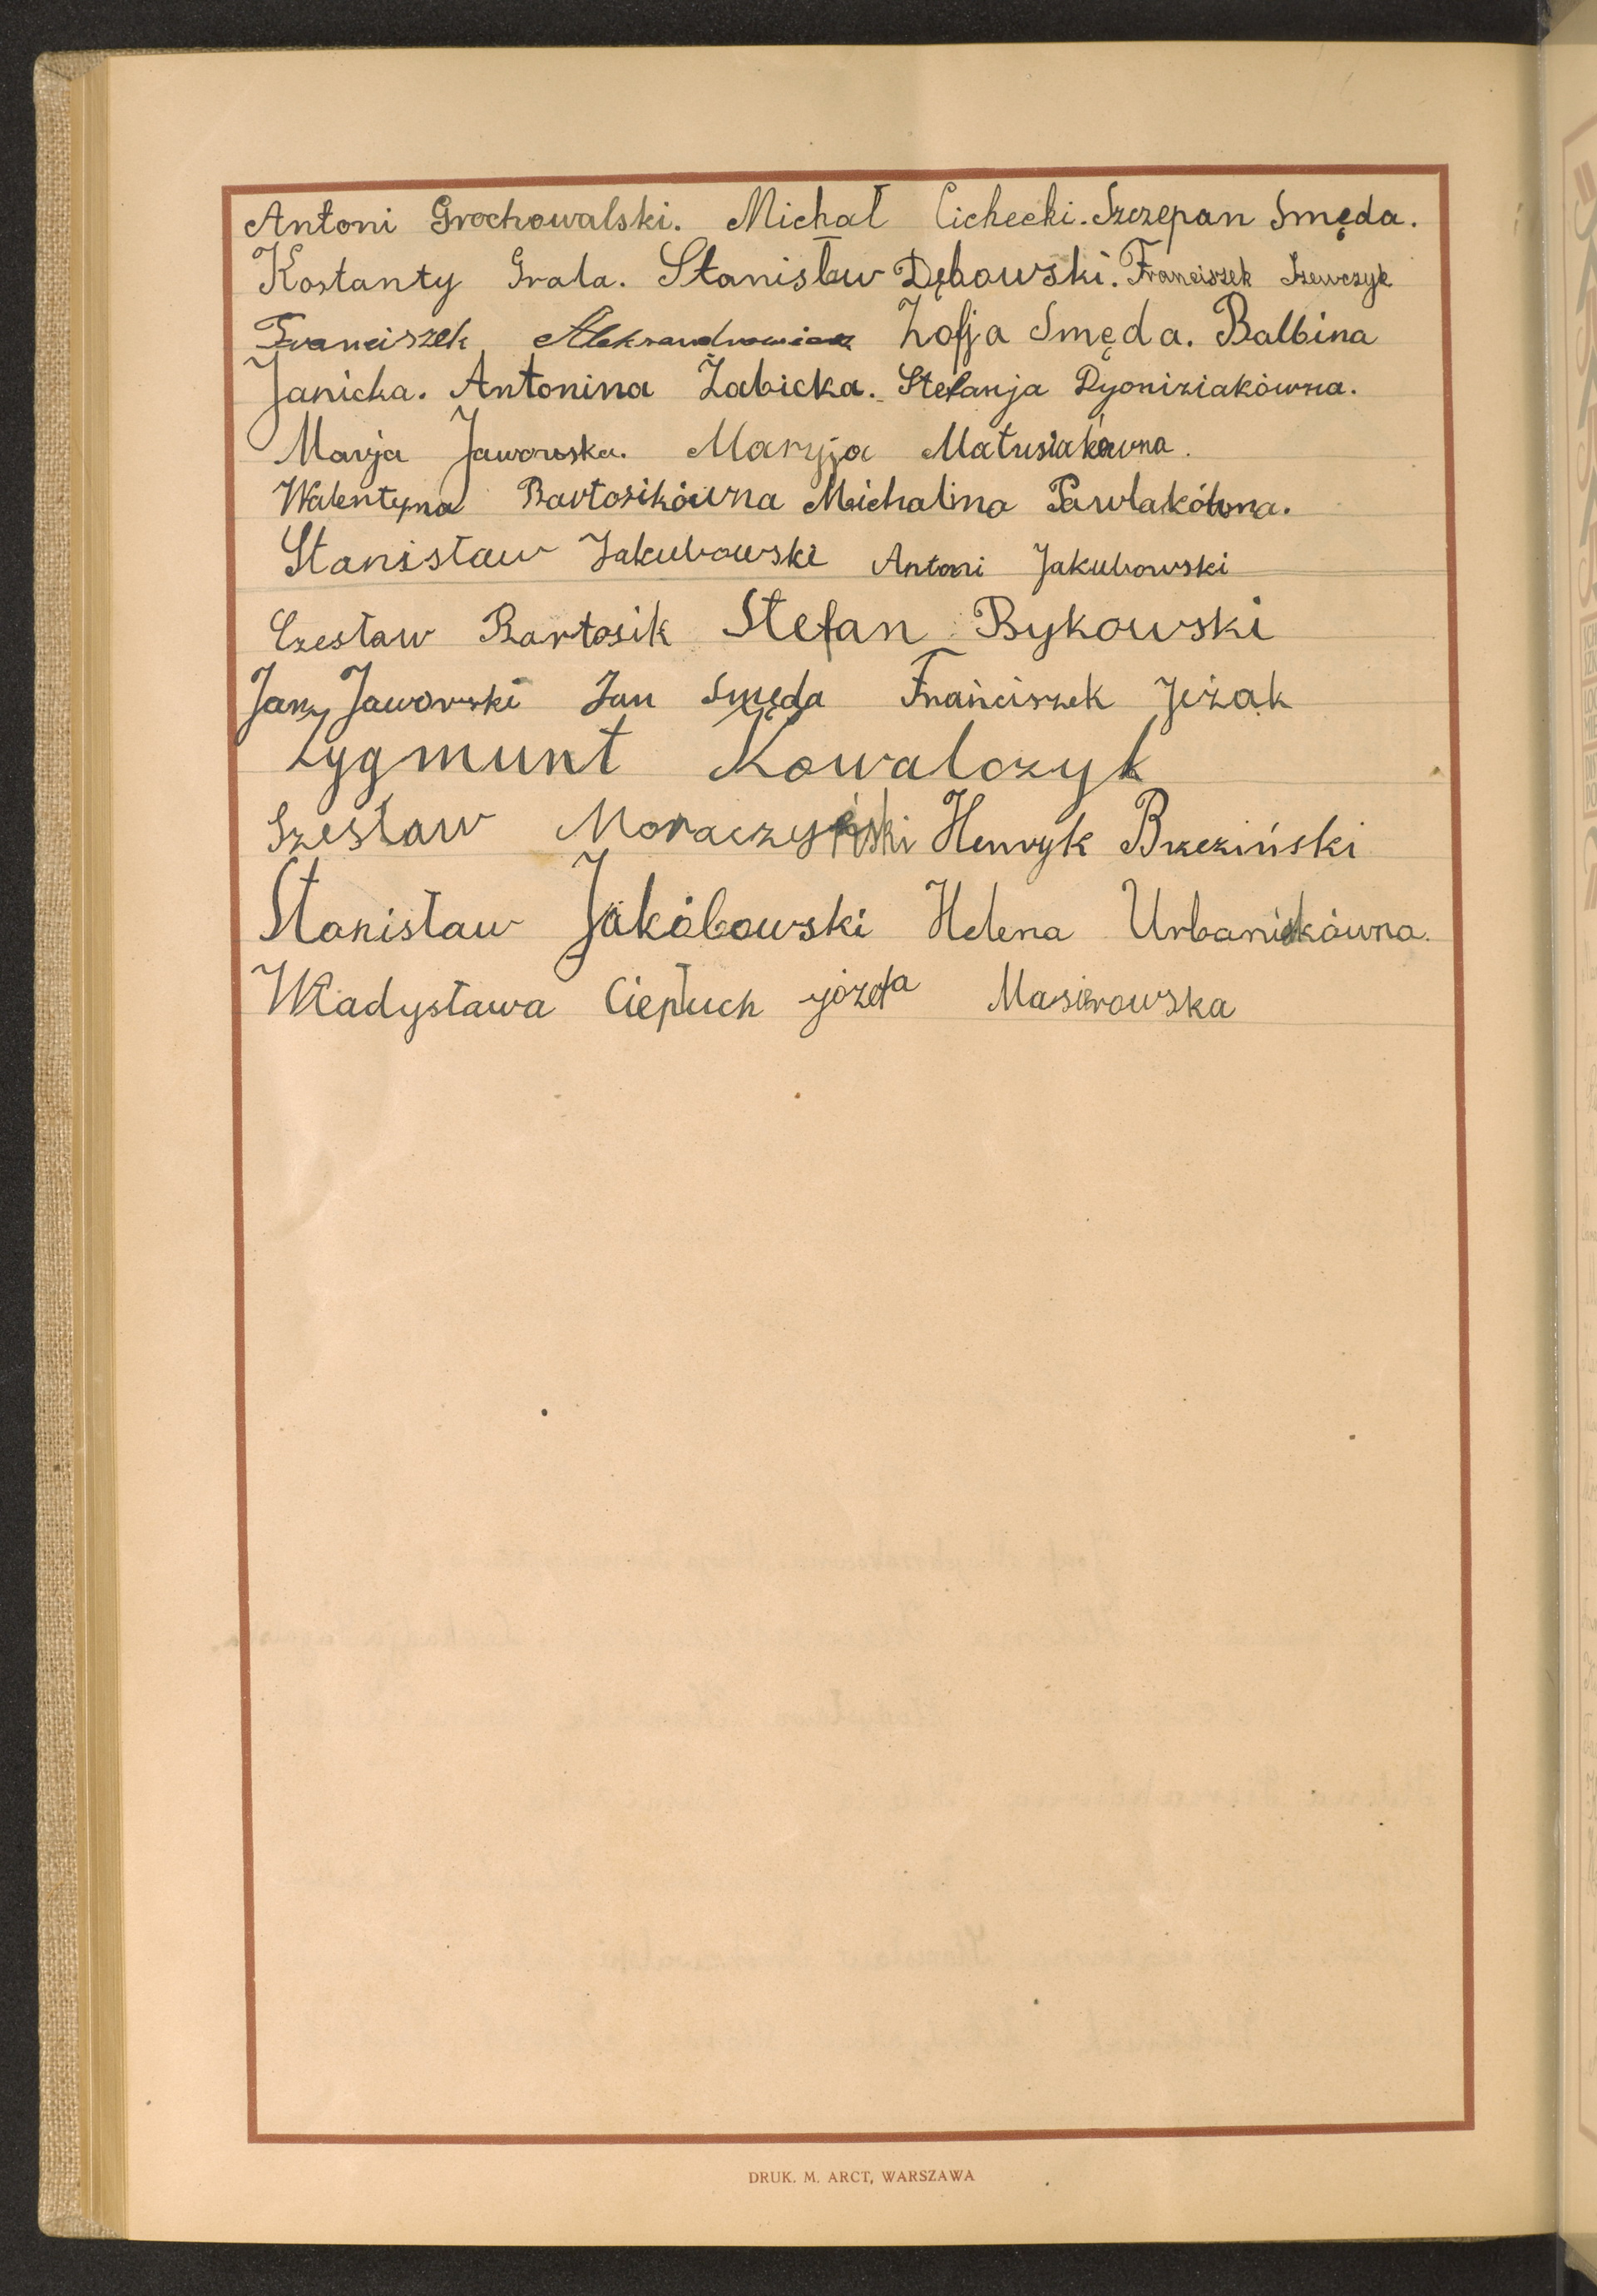 Antoni Grochowalski. Michał Cichecki. Szczepan Smęda.
Kostanty Grala. Stanisław Dębowski. Franciszek Szewczyk
Franciszek Aleksandrowicz Zofja Smęda. Balbina
Janicka. Antonina Żabicka. Stefanja Dyoniziakówna.
Marja Jaworska. Maryja Matusiakówna.
Walentyna Bartosikówna Michalina Pawlakówna.
Stanisław Jakubowski Antoni Jakubowski
Czesław Bartosik Stefan Bykowski
Jan Jaworski Jan Smęda Franciszek Jeżak
Zygmunt Kowalczyk
Szesław Moraczyński Henryk Brzeziński
Stanisław Jakóbowski Helena Urbaniakówna.
Władysława Ciepłuch józefa Masierowska
DRUK. M. ARCT, WARSZAWA